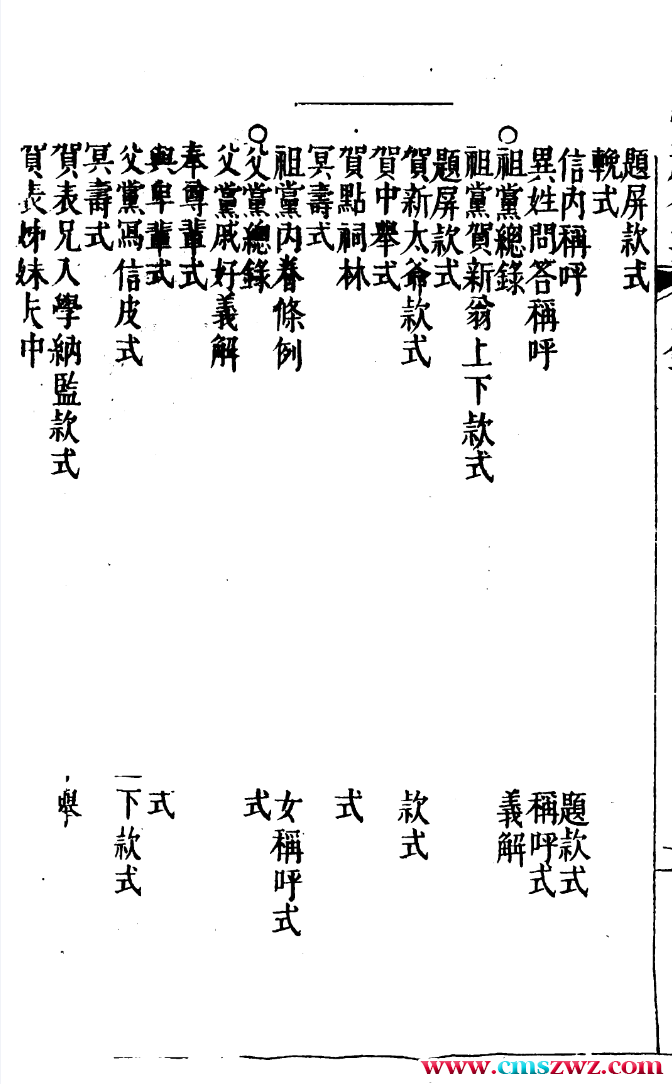 題屏款式
輓式
信內稱呼
題款式
異姓問答稱呼
稱呼式
祖黨總錄
義解
祖黨賀新翁上下款式
題屏款式
賀新太爺款式
款式
賀中舉式
賀點詞林
式
冥壽式
祖黨內眷條例
女稱呼式
父黨總錄
式
父黨戚好義解
奉尊輩式
與卑輩式
式
父黨寫信皮式
下款式
冥壽式
賀表兄入學納監款式
舉
賀表姊妹丈中
www.cmszwz.com